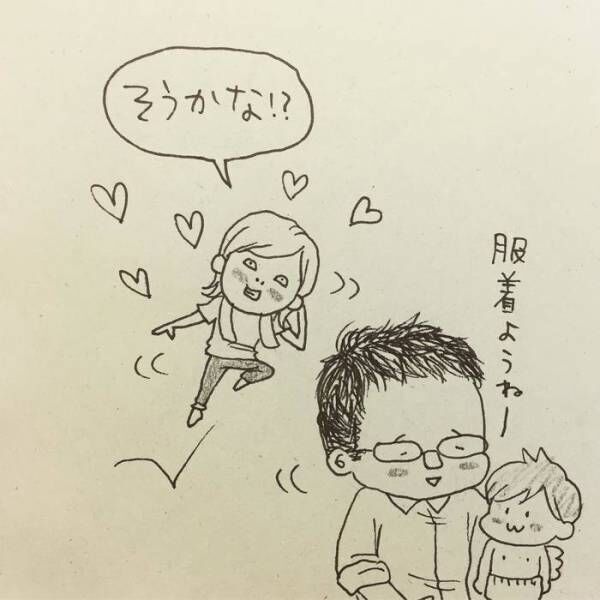 そうかな!?
服着ようねー